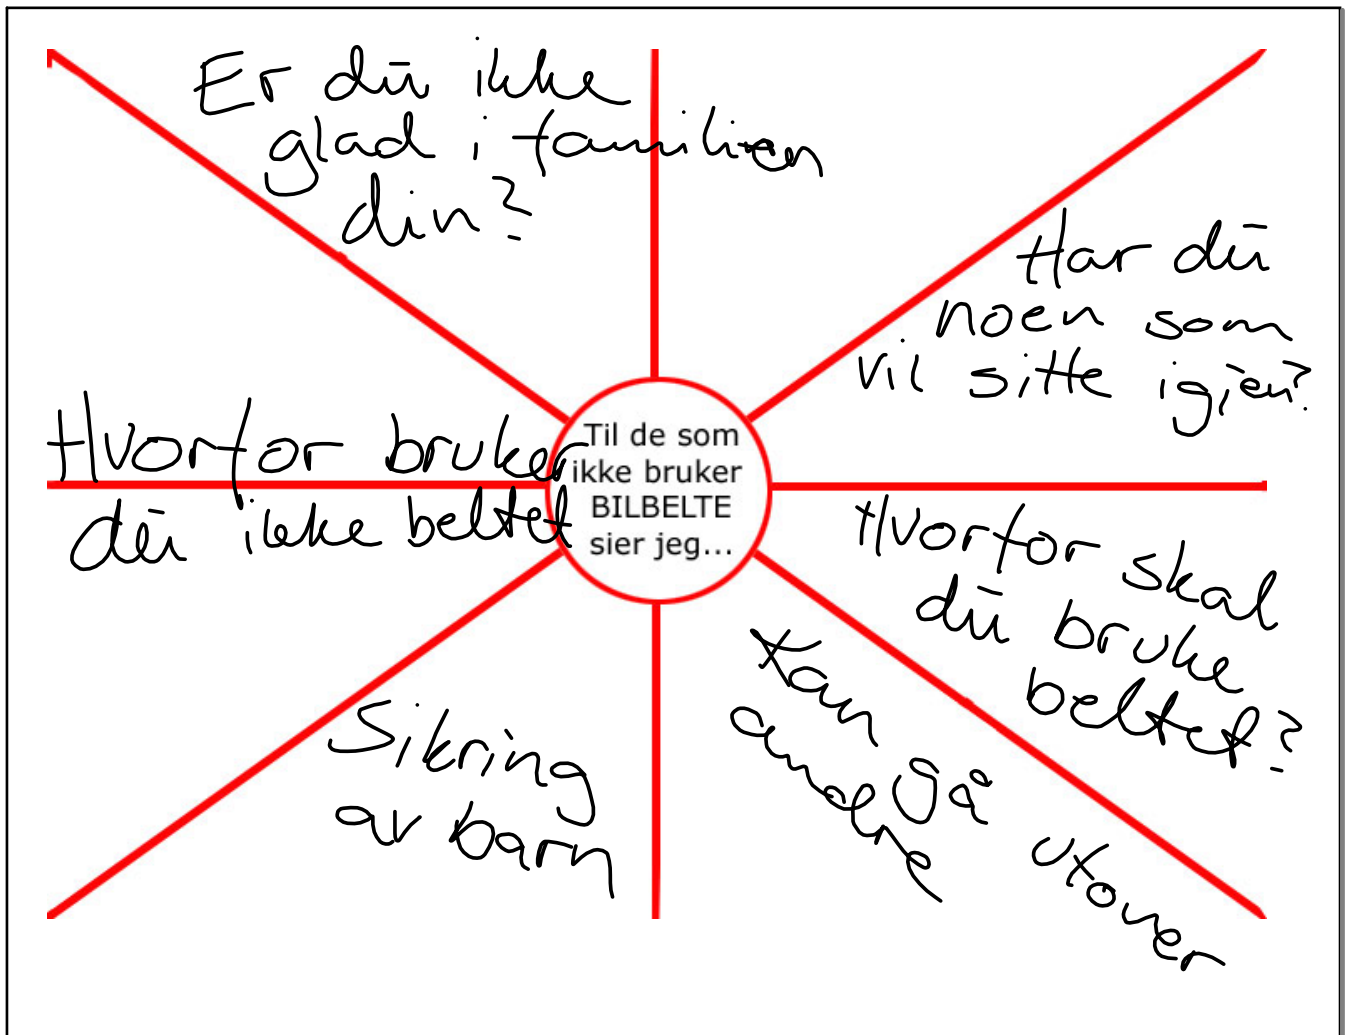 Er du ikke
glad i familien
din?
Har du
noen som
vil sitte igjen?
Hvorfor bruker
du ikke beltet
Til de som
ikke bruker
BILBELTE
sier jeg...
Hvorfor skal
du bruke
beltet?
Kan gå utover
andre
Sikring
av barn